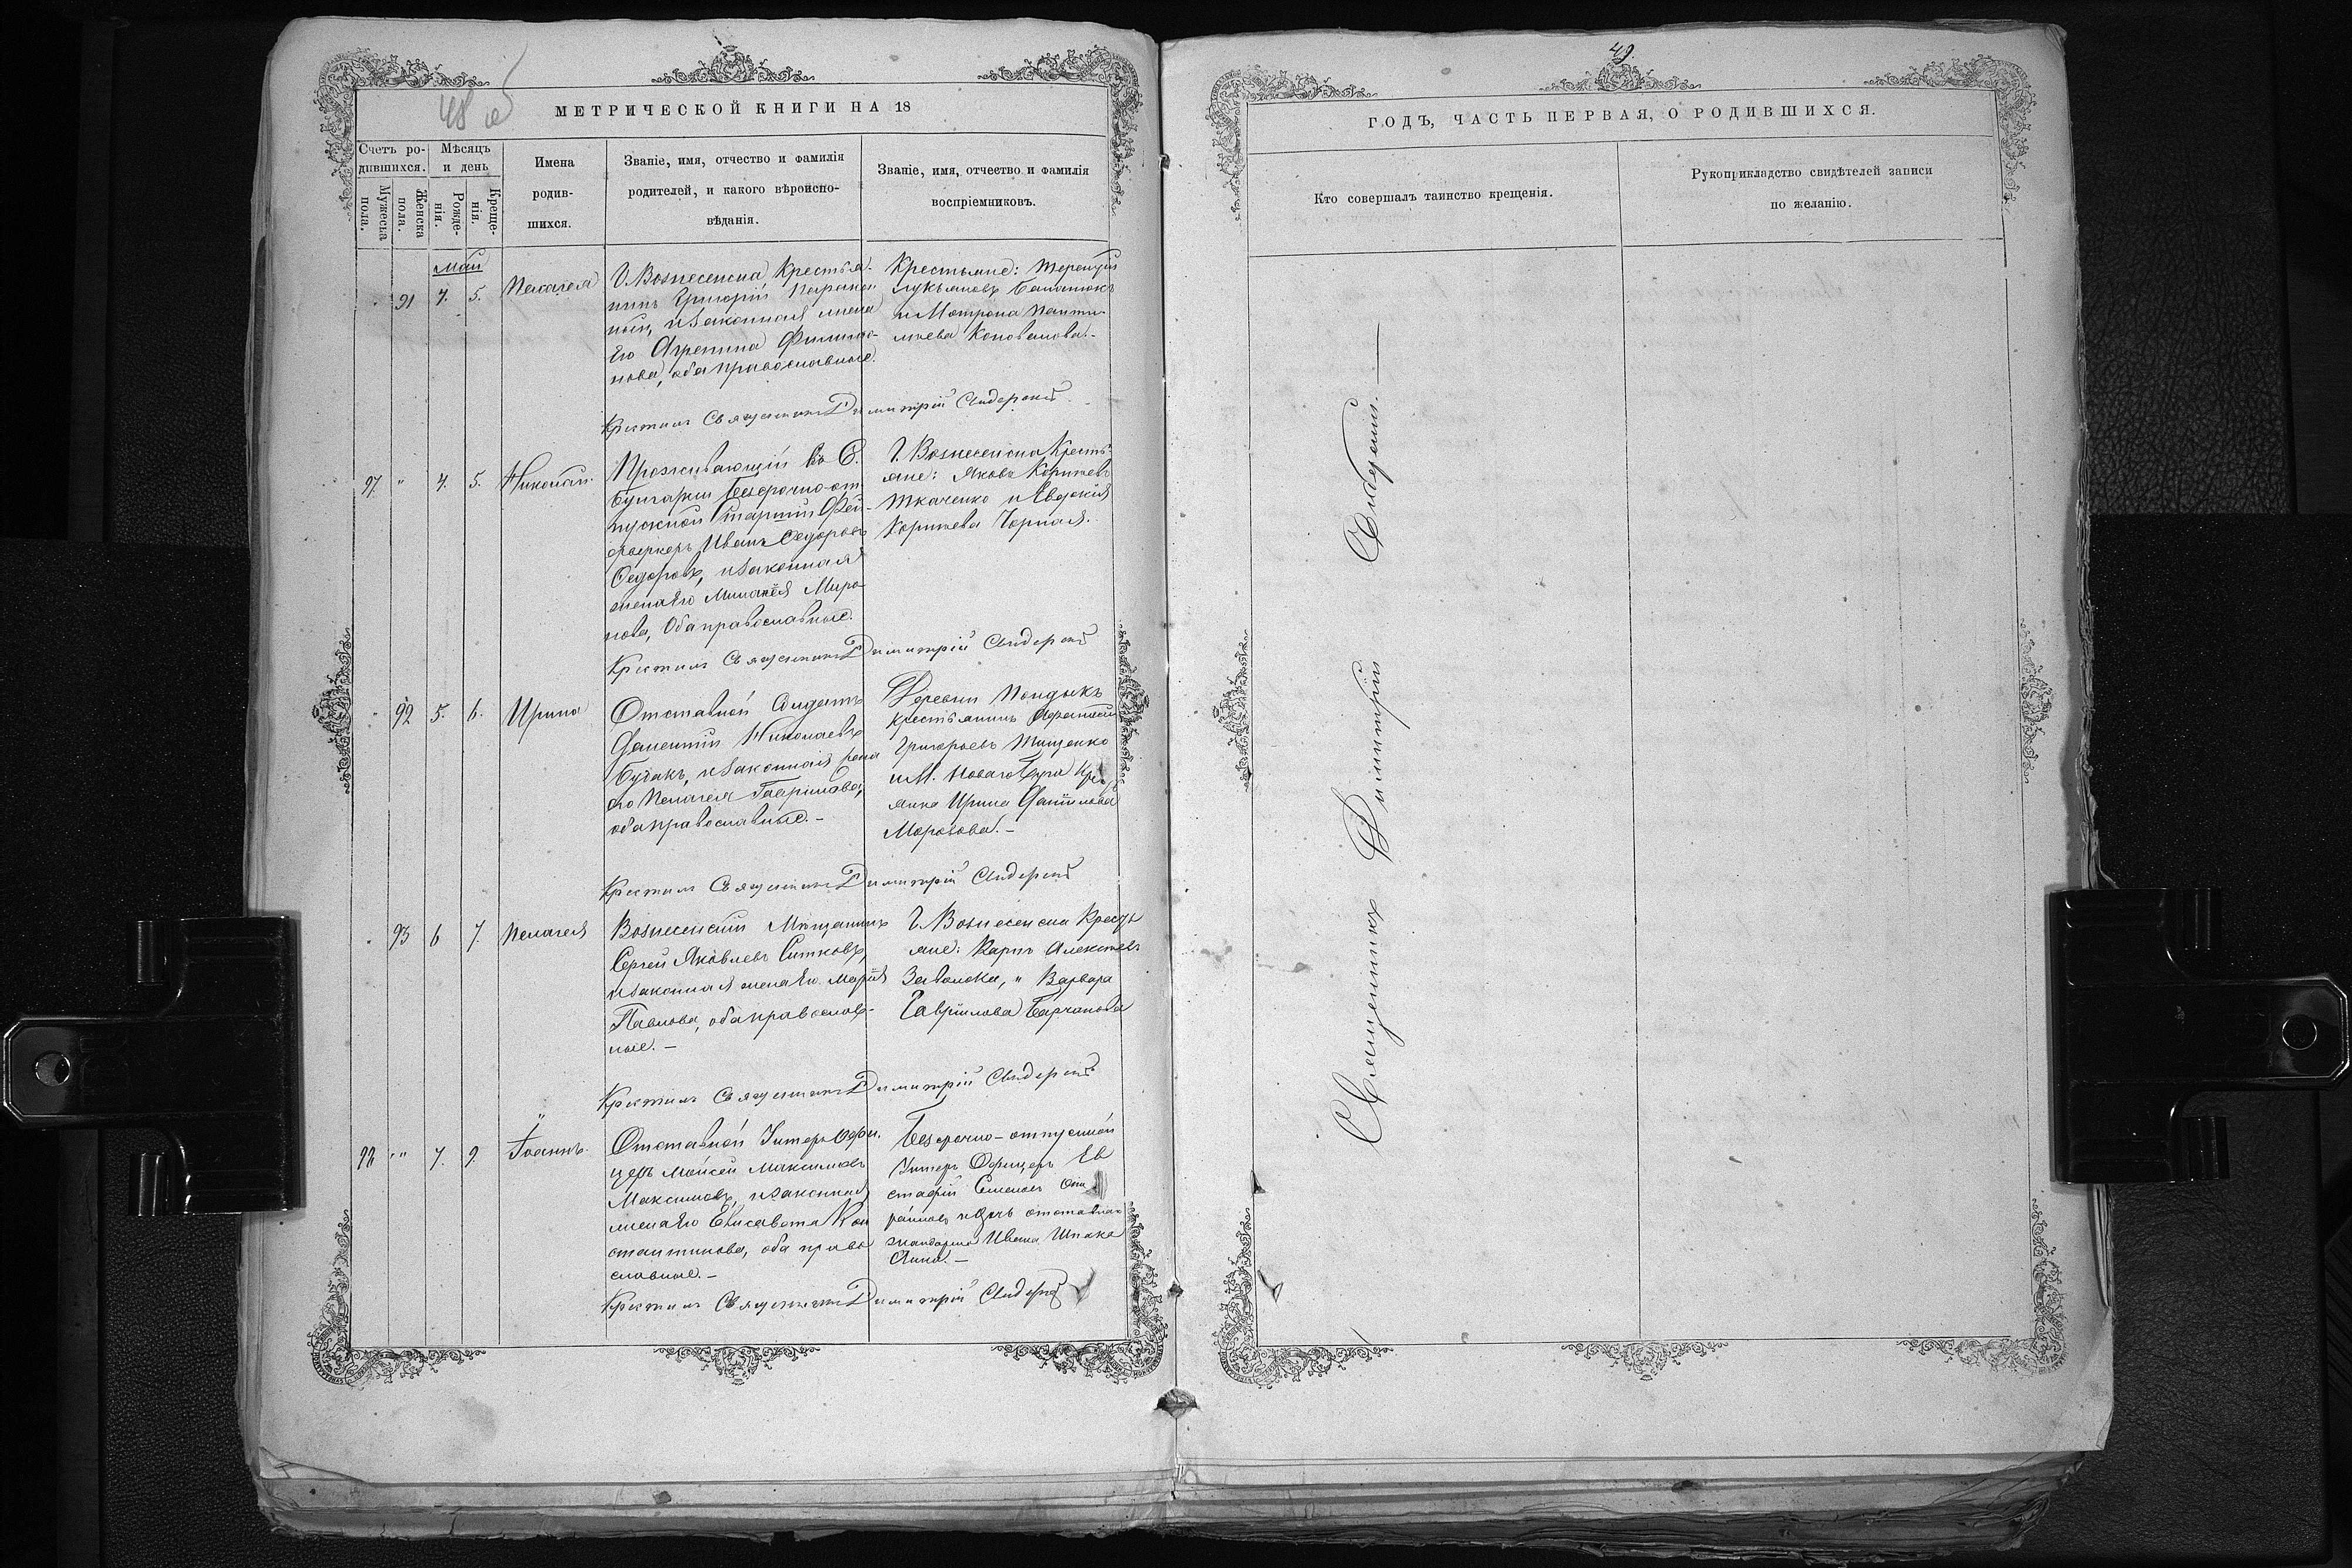 48 об
МЕТРИЧЕСКОЙ КНИГИ НА 18
Счетъ ро-
дившихся.
Мѣсяцъ
и день
Мужеска
пола.
Женска
пола.
Рожде-
нія.
Креще-
нія.
Имена
родив-
шихся.
Званіе, имя, отчество и фамилія
родителей, и какого вѣроиспо-
вѣданія.
Званіе, имя, отчество и фамилія
воспріемниковъ.
май
91 4. 5. Пелагея
Г. Вознесенска Крестья-
нинъ Григорій
ный, и законная жена
Его Агрепина Филипо-
нова, оба православные.
Крестьяне: Терентій
Лукьяновъ Баланюкъ
и Мотрона Панти-
леева Коновалова.-
Крестилъ Священникъ Димитрій
97. " 4. 5. Николай.
Проживающій въ С.
Булгарки безсрочно-от
пускной Старшій Фей-
ерверкеръ Иванъ Федоровъ
Федоровъ, и законная
жена Его Миро-
нова, Оба православные.
Г. Вознесенска Кресть-
яне: Яковъ Корнѣевъ
Ткаченко и Евдокія
Корнѣева Чорная.
Крестилъ Священникъ Димитрій
92 5. 6. Ирина
Отставной Солдатъ
Николаевъ
и законная жена
его Пелагея Гаврилова,
оба православные.-
Деревни
Крестьянинъ
Григорьевъ Тищенко
и М. Новаго Буга
янка Ирина Даніилова
Морозова.-
Крестилъ Священникъ Димитрій
93 6 7. Пелагея
Вознесенскій Мѣщанинъ
Сергей Яковлевъ Ситковъ,
и законная жена Его Марія
Павлова, оба православ-
ные.-
Г. Вознесенска Кресть
яне: Карпъ Алексѣевъ
Заволока, и Варвара
Гавріилова
Крестилъ Священникъ Димитрій
98 " 7. 9. Іоаннъ.
Отставной Унтеръ Офи-
церъ Моисей Максимовъ
Максимовъ, и законная
жена Его Елисавета Кон
стантинова, оба право
славные.-
Безсрочно-отпускной
Унтеръ Офицеръ Ев
стафій Семеновъ
и дочь отставнаго
жандарма Ивана Шпака
Анна.-
Крестилъ Священникъ Димитрій
49.
ГОДЪ, ЧАСТЬ ПЕРВАЯ, О РОДИВШИХСЯ.
Кто совершалъ таинство крещенія.
Рукоприкладство свидѣтелей записи
по желанію.
Священникъ Димитрій